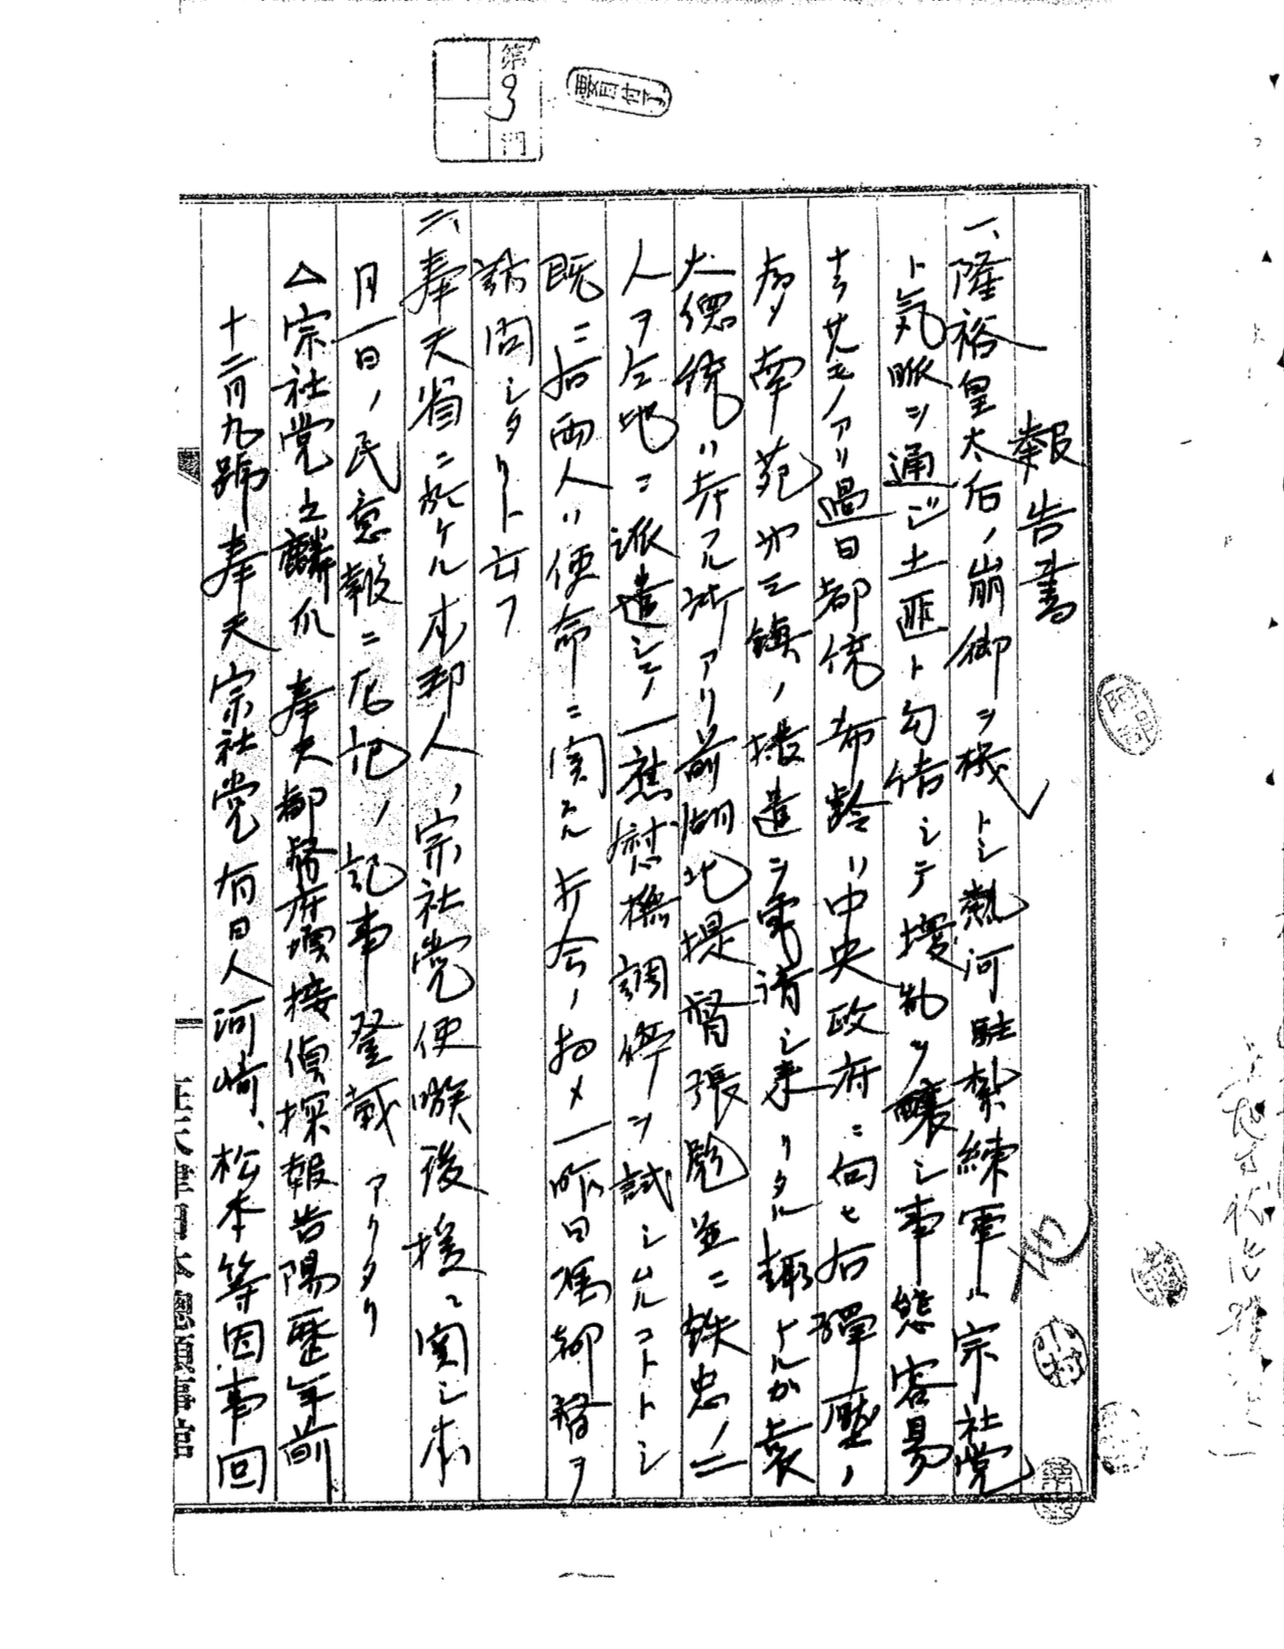 第3門
要目付了
報告書
一、隆裕皇太后ノ崩御ヲ機トシ熱河駐紮練軍ハ宗社党
ト気脈ヲ通ジ土匪ト勾結シテ壊乱ヲ醸シ事態容易
ナラサルモノアリ過日都統希齢ハ中央政府ニ向ヒ右弾壓ノ
為メ南苑ヨリ三鎮ノ撥遣ヲ電請シ来リタル趣ナルカ袁
大總統ハ考フル所アリ前湖北提督張彪並ニ鉄忠ノ二
人ヲ仝地ニ派遣シテ一應慰撫調停ヲ試シムルコトトシ
既ニ右両人ハ使命ニ関スル打合ノ為メ一昨日馮都督ヲ
訪問シタリト云フ
二、奉天省ニ於ケル本邦人ノ宗社党使嗾後援ニ関シ本
月一日ノ民意報ニ左記ノ記事登載アリタリ
△宗社党之麟爪 奉天都督府頃接偵探報告陽歴年前
十二月九號奉天宗社党有日人河崎、松本等因事回
在天津日本總領事館
阿部
小村